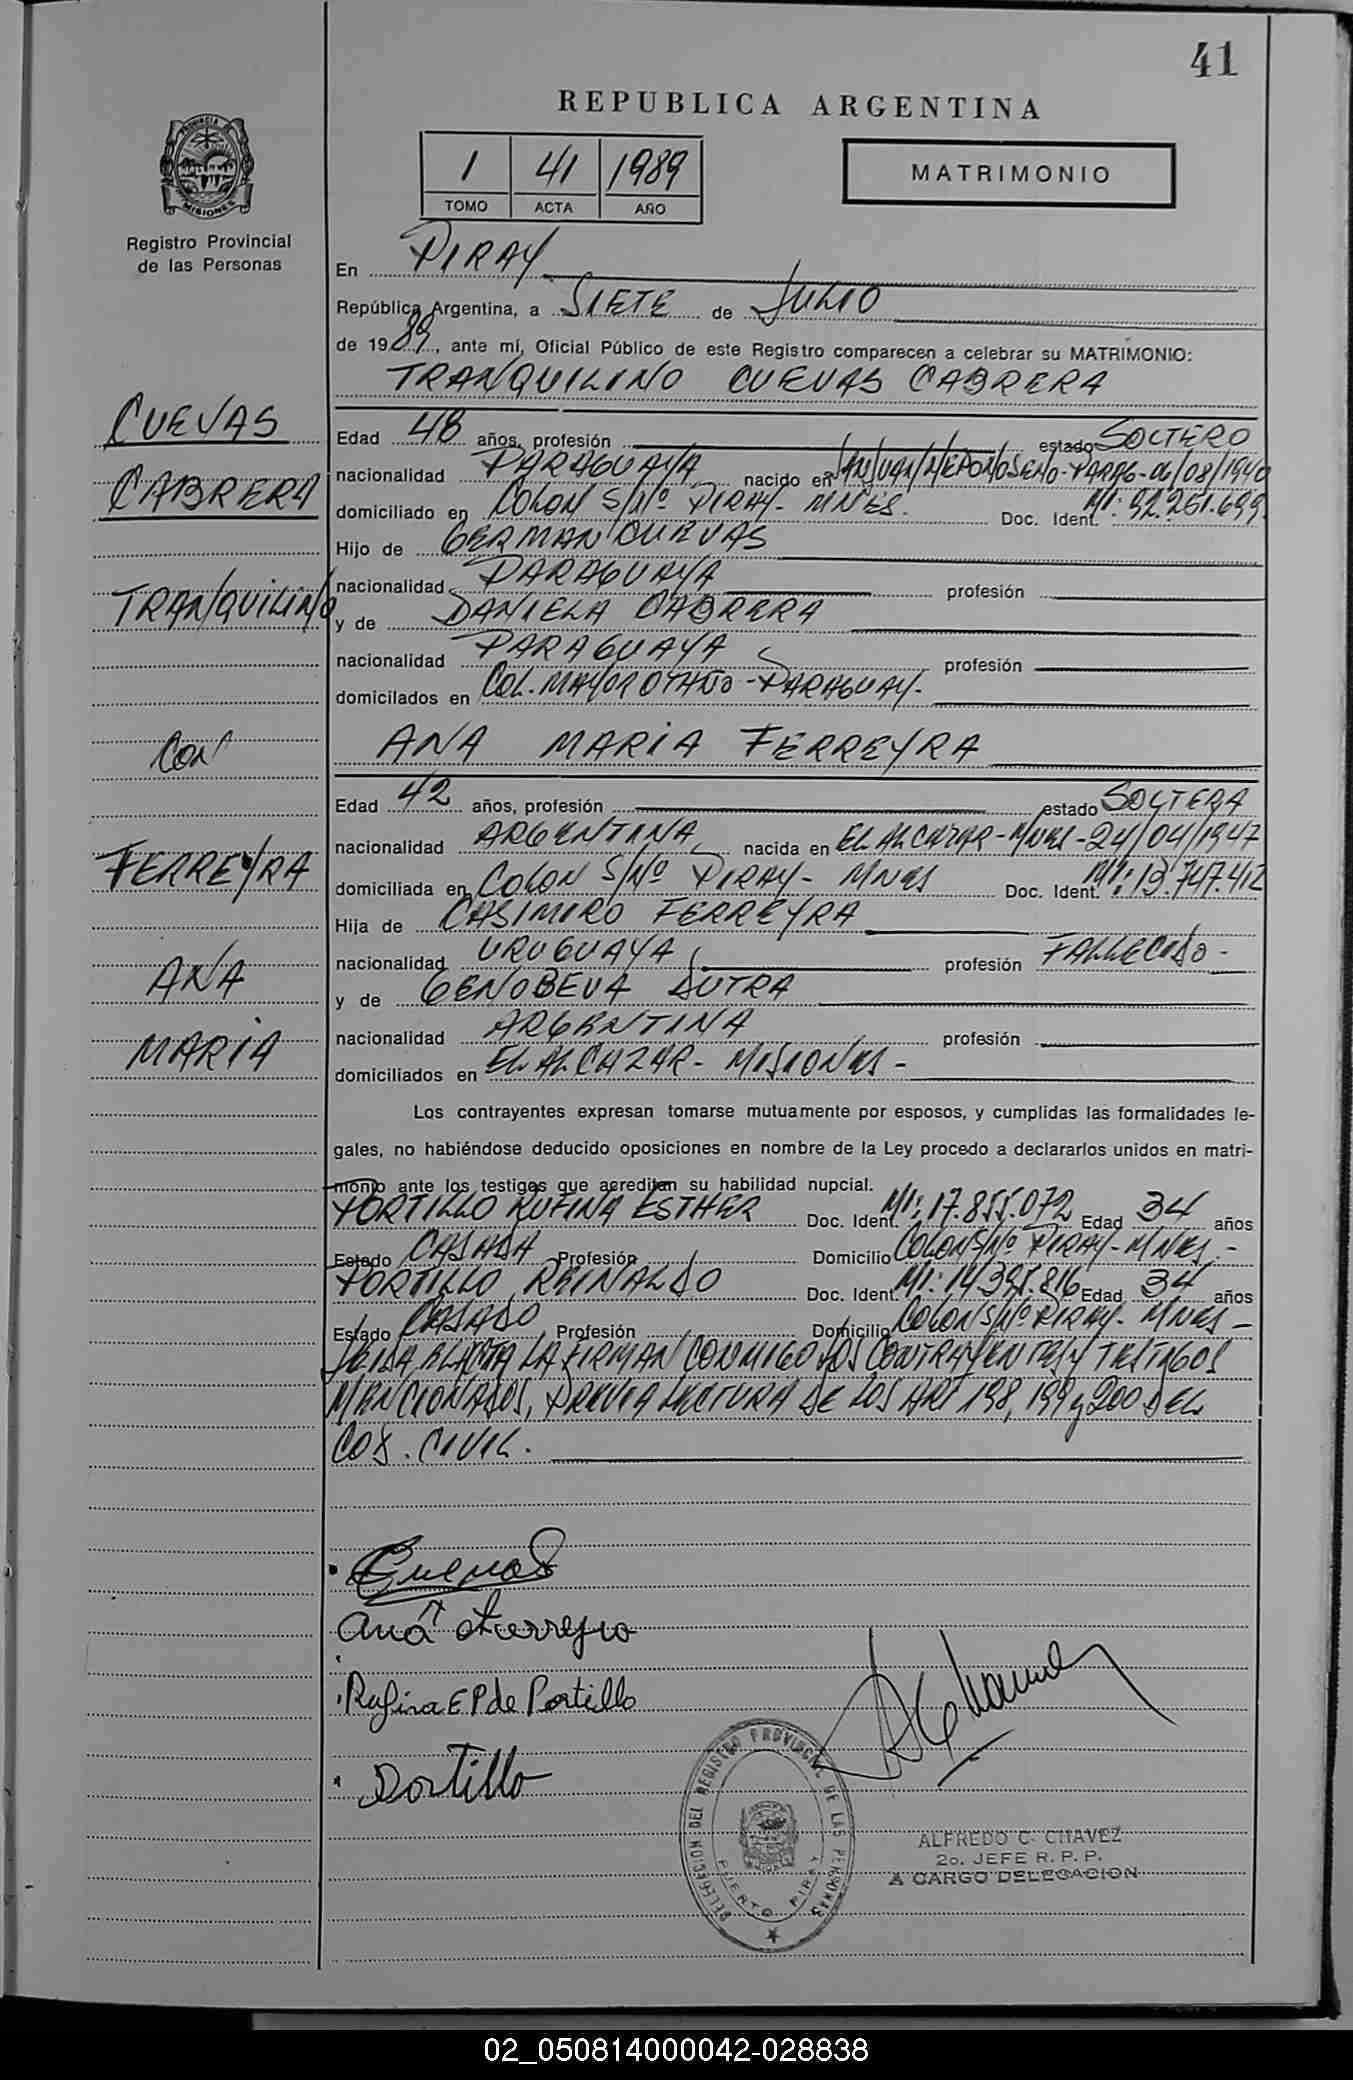 41
REPUBLICA ARGENTINA
1 41 1989
TOMO ACTA AÑO
MATRIMONIO
PROVINCIA DE MISIONES
Registro Provincial
de las Personas
En PIRAY
República Argentina, a SIETE de JULIO
de 1989, ante mí, Oficial Público de este Registro comparecen a celebrar su MATRIMONIO:
TRANQUILINO CUEVAS CABRERA
CUEVAS
CABRERA
TRANQUILINO
CON
FERREYRA
ANA
MARIA
Edad 48 años, profesión estado SOLTERO
nacionalidad PARAGUAYA nacido en SAN JUAN NEPOMOSENO-PARAG-06/08/1940
domiciliado en COLON S/Nº PIRAY- MNES. Doc. Ident. MI: 92.261.699.
Hijo de GERMAN CUEVAS
nacionalidad PARAGUAYA profesión
y de DANIELA CABRERA
nacionalidad PARAGUAYA profesión
domicilados en COL. MAYOR OTAÑO-PARAGUAY-
ANA MARIA FERREYRA
Edad 42 años, profesión estado SOLTERA
nacionalidad ARGENTINA nacida en EL ALCAZAR-MNES-24/04/1947
domiciliada en COLON S/Nº PIRAY- MNES Doc. Ident. MI: 13.747.412
Hija de CASIMIRO FERREYRA
nacionalidad URUGUAYA profesión FALLECIDO-
y de GENOBEVA DUTRA
nacionalidad ARGENTINA profesión
domiciliados en EL ALCAZAR- MISIONES-
Los contrayentes expresan tomarse mutuamente por esposos, y cumplidas las formalidades le-
gales, no habiéndose deducido oposiciones en nombre de la Ley procedo a declararlos unidos en matri-
monio ante los testigos que acreditan su habilidad nupcial.
PORTILLO RUFINA ESTHER Doc. Ident. MI: 17.855.072 Edad 34 años
Estado CASADA Profesión Domicilio COLON S/Nº PIRAY-MNES.-
PORTILLO REINALDO Doc. Ident. MI: 14.395.816 Edad 34 años
Estado CASADO Profesión Domicilio COLON S/Nº PIRAY- MNES-
LEIDA EL ACTA LA FIRMAN CONMIGO LOS CONTRAYENTES Y TESTIGOS
MENCIONADOS, PREVIA LECTURA DE LOS ART 198, 199 y 200 DEL
COD. CIVIL.
Cuevas
Ana M Ferreyra
Rufina E P de Portillo
Portillo
DELEGACION DEL REGISTRO PROVINCIAL DE LAS PERSONAS
PUERTO PIRAY
ALFREDO C. CHAVEZ
2o. JEFE R. P. P.
A CARGO DELEGACION
02_050814000042-028838